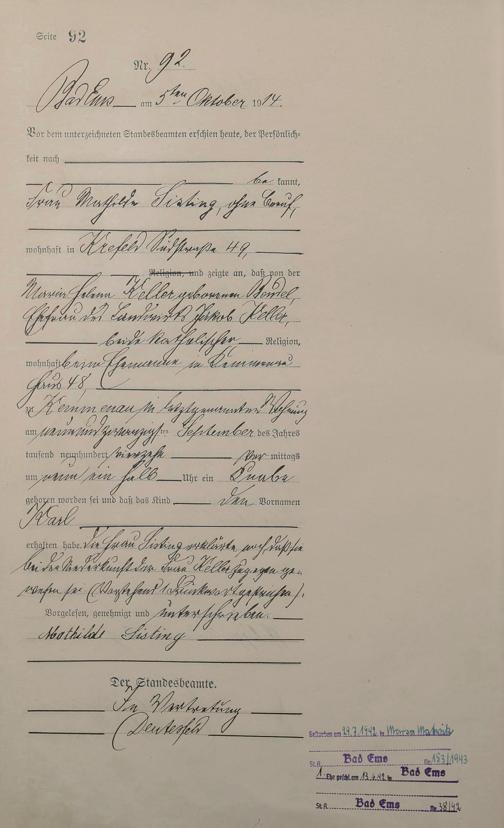 Seite 92
Nr. 92.
Bad Ems am 5ten Oktober 1914.
Vor dem unterzeichneten Standesbeamten erschien heute, der Persönlich-
keit nach
be kannt,
Frau Mathilde Sisting, ohne Beruf,
wohnhaft in Krefeld Südstraße 49,
Religion, und zeigte an, daß von der
Maria Helena Keller geborenen Bendel,
Ehefrau des Landwirts Jakob Keller,
beide katholischer Religion,
wohnhaft beim Ehemanne in Kemmenau
Haus 48,
zu Kemmenau in letztgenannter Wohnung
am neunundzwanzigsten September des Jahres
tausend neunhundert vierzehn Vor mittags
um neun ein halb Uhr ein Knabe
geboren worden sei und daß das Kind den Vornamen
Karl
erhalten habe. Die Frau Sisting erklärte noch, daß sie
bei der Niederkunft der Frau Keller zugegen ge-
wesen sei (Vorstehend 1 Druckwort gestrichen).
Vorgelesen, genehmigt und unterschrieben.
Mathilde Sisting
Der Standesbeamte.
In Vertretung
Gestorben am 29.7.1942 in
St.A. Bad Ems Nr. 153/1943
1 Ehe geschl. am 13.4.42 in Bad Ems
St.A. Bad Ems Nr. 38/42